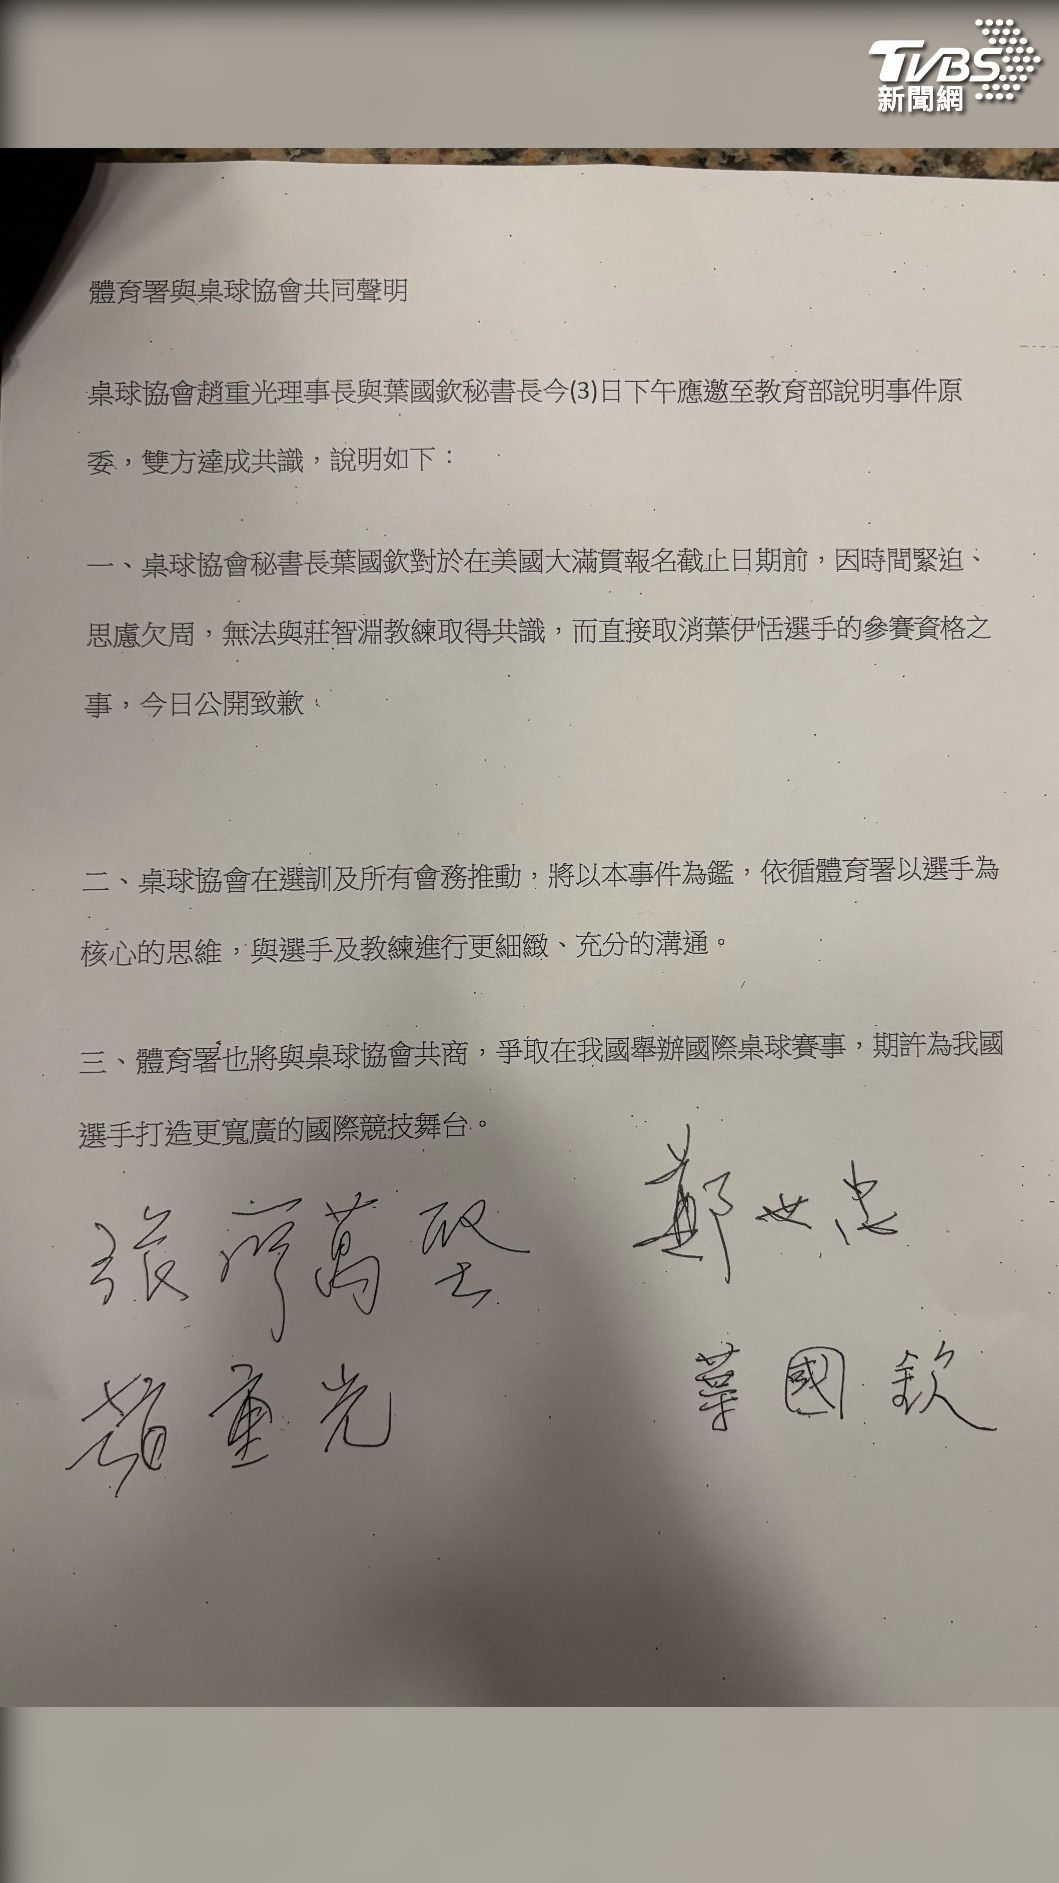 TVBS
新聞網
體育署與桌球協會共同聲明
桌球協會趙重光理事長與葉國欽秘書長今(3)日下午應邀至教育部說明事件原
委，雙方達成共識，說明如下：
一、桌球協會秘書長葉國欽對於在美國大滿貫報名截止日期前，因時間緊迫、
思慮欠周，無法與莊智淵教練取得共識，而直接取消葉伊恬選手的參賽資格之
事，今日公開致歉。
二、桌球協會在選訓及所有會務推動，將以本事件為鑑，依循體育署以選手為
核心的思維，與選手及教練進行更細緻、充分的溝通。
三、體育署也將與桌球協會共商，爭取在我國舉辦國際桌球賽事，期許為我國
選手打造更寬廣的國際競技舞台。
張廖萬堅 鄭世忠
趙重光 葉國欽